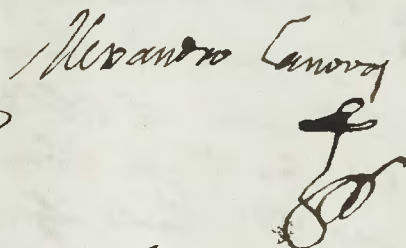 Alessandro Canova